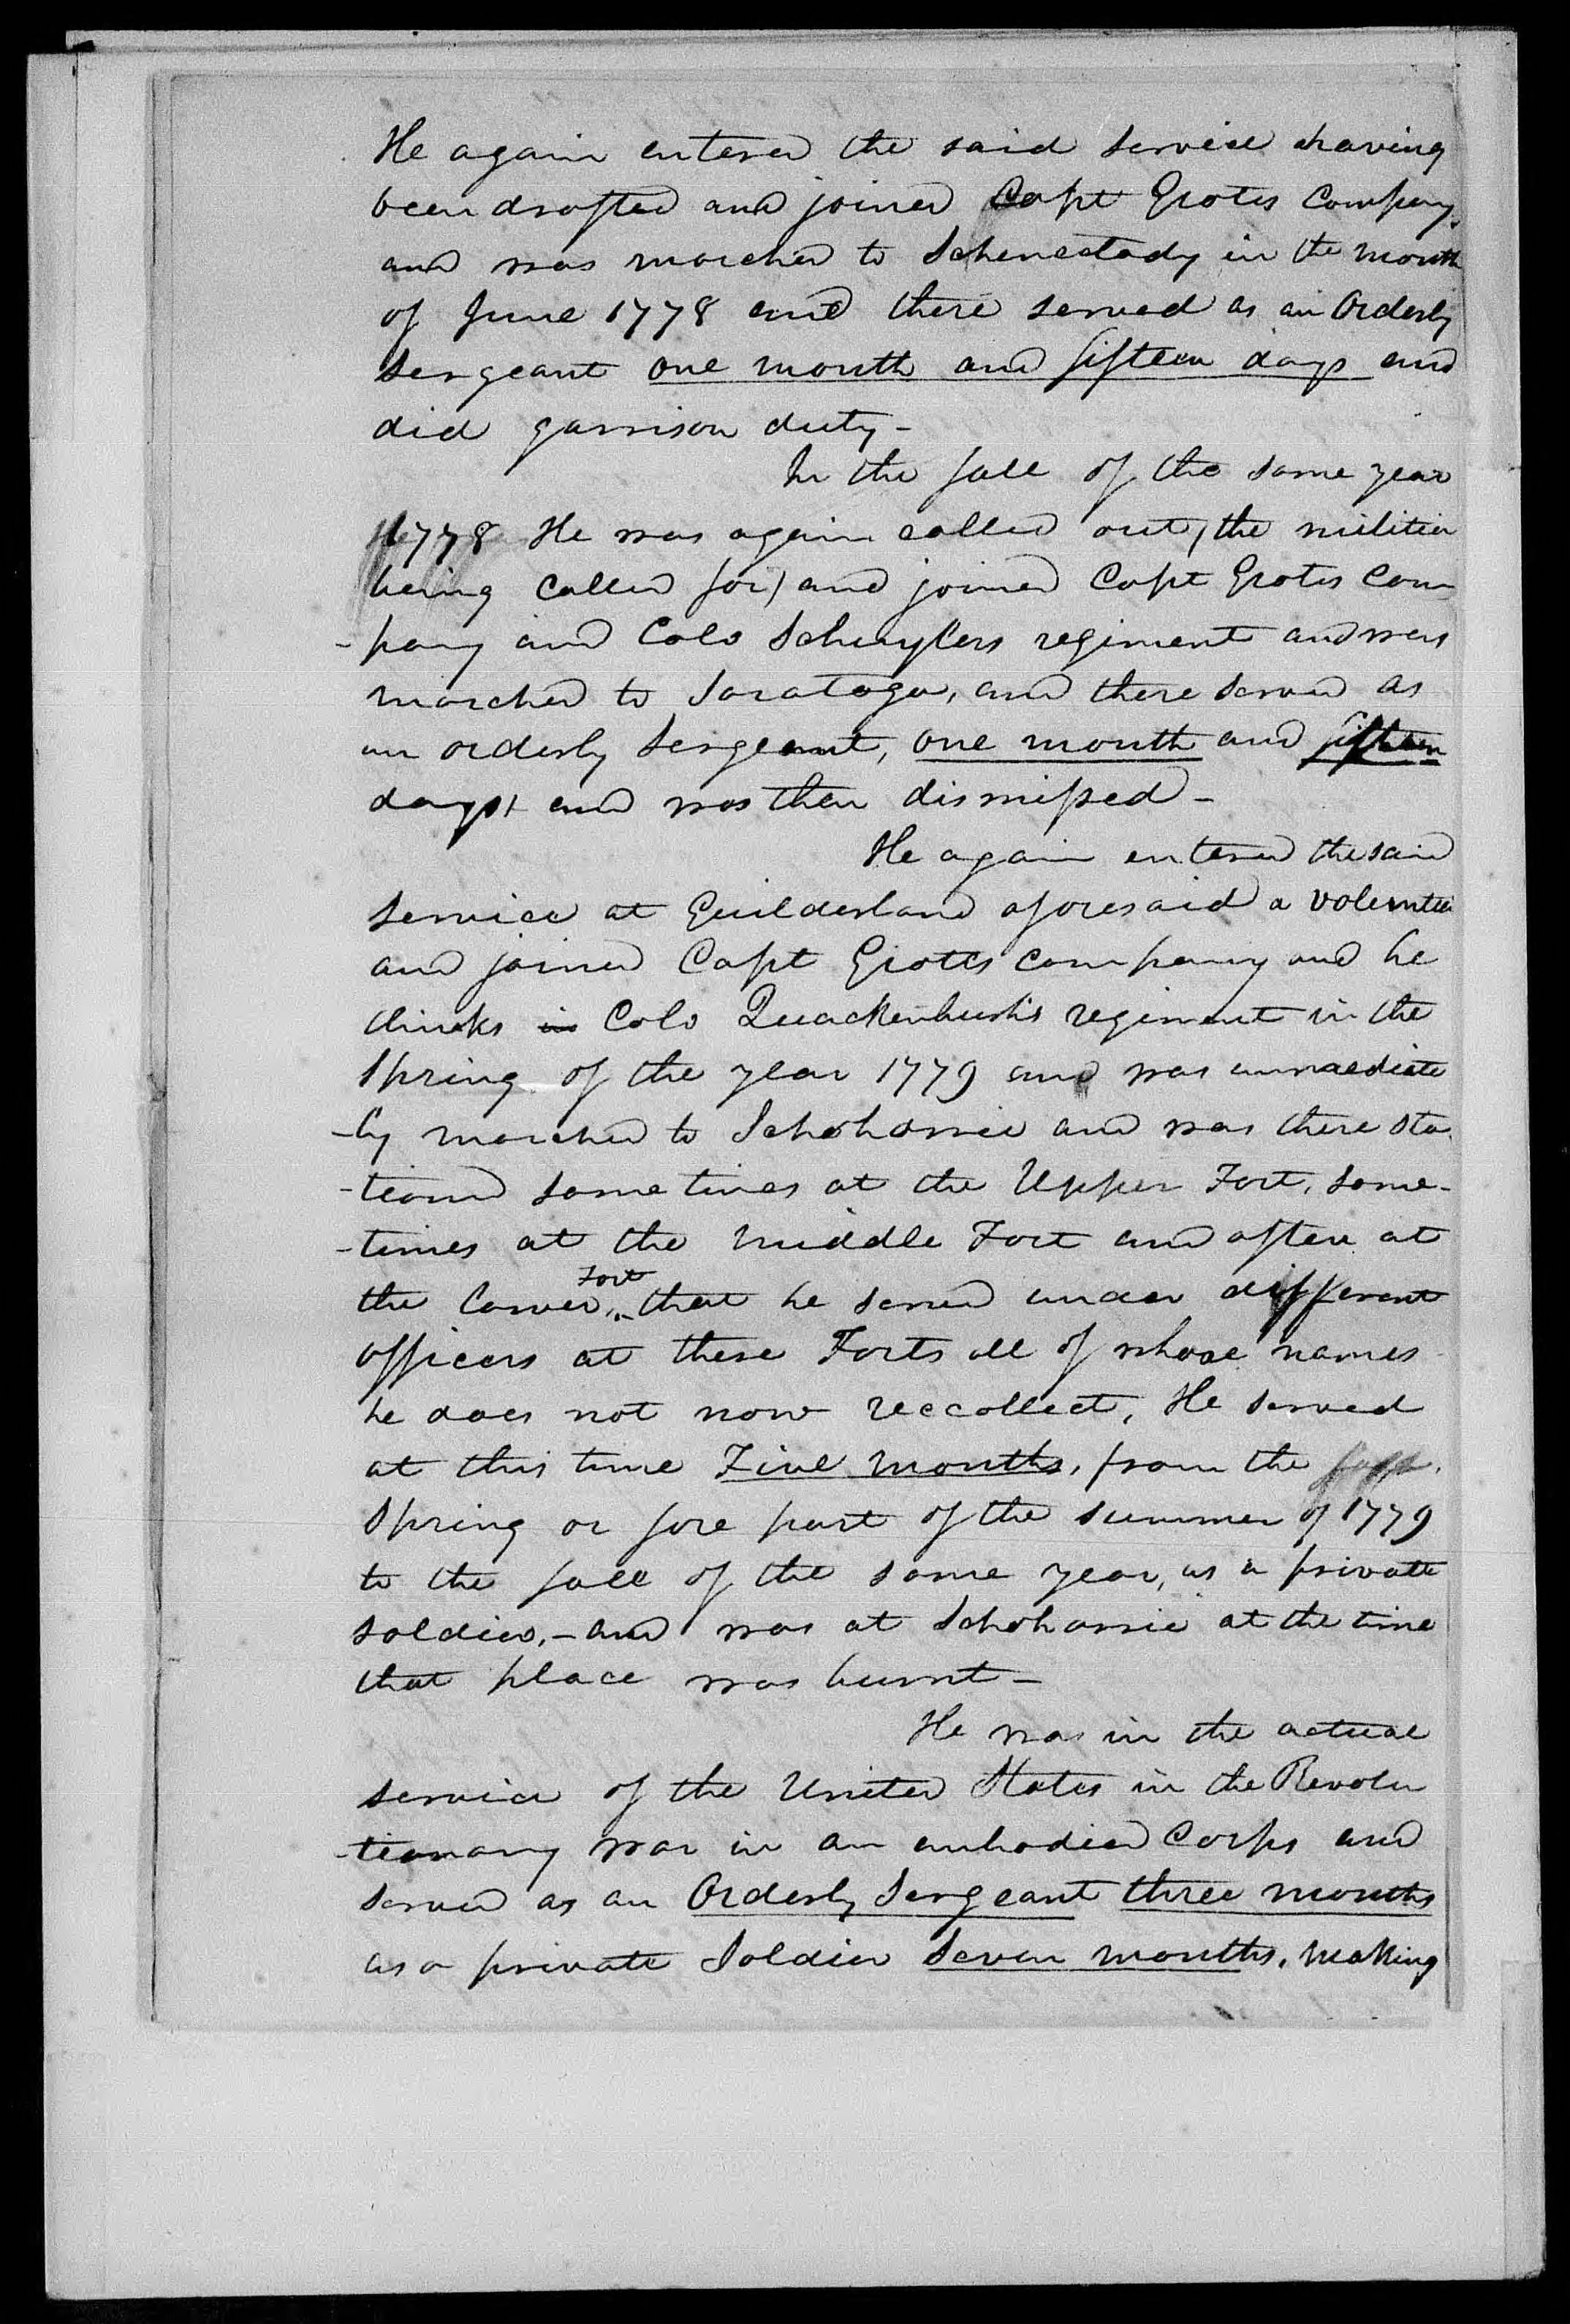 He again entered the said service having
been drafted and joined Capt Grotes Company,
and was marched to Schenectady in the month
of June 1778 and there served as an Orderly
Sergeant one month and fifteen days and
did garrison duty -
In the fall of the same year
1778 He was again called out, (the militia
being called for) and joined Capt Grotes Com
- pany and Colo Schuylers regiment and was
marched to Saratoga, and there served as
an orderly Sergeant, one month and fifteen
days, and was then dismissed -
He again entered the said
service at Guilderland aforesaid a volunteer
and joined Capt Grotes company and he
thinks in Colo Quackenbush's regiment in the
Spring of the year 1779 and was immediate
-ly marched to Schoharrie and was there sta
-tioned sometimes at the Upper Fort, some-
-times at the Middle Fort and often at
the Lower Fort, that he served under different
officers at these Forts all of whose names
he does not now reccollect, He served
at this time Five months, from the
Spring or fore part of the summer of 1779
to the fall of the same year, as a private
soldier, - and was at Schoharrie at the time
that place was burnt -
He was in the actual
service of the United States in the Revolu
-tionary war in an embodied Corps and
served as an Orderly Sergeant three months
as a private Soldier Seven months, making